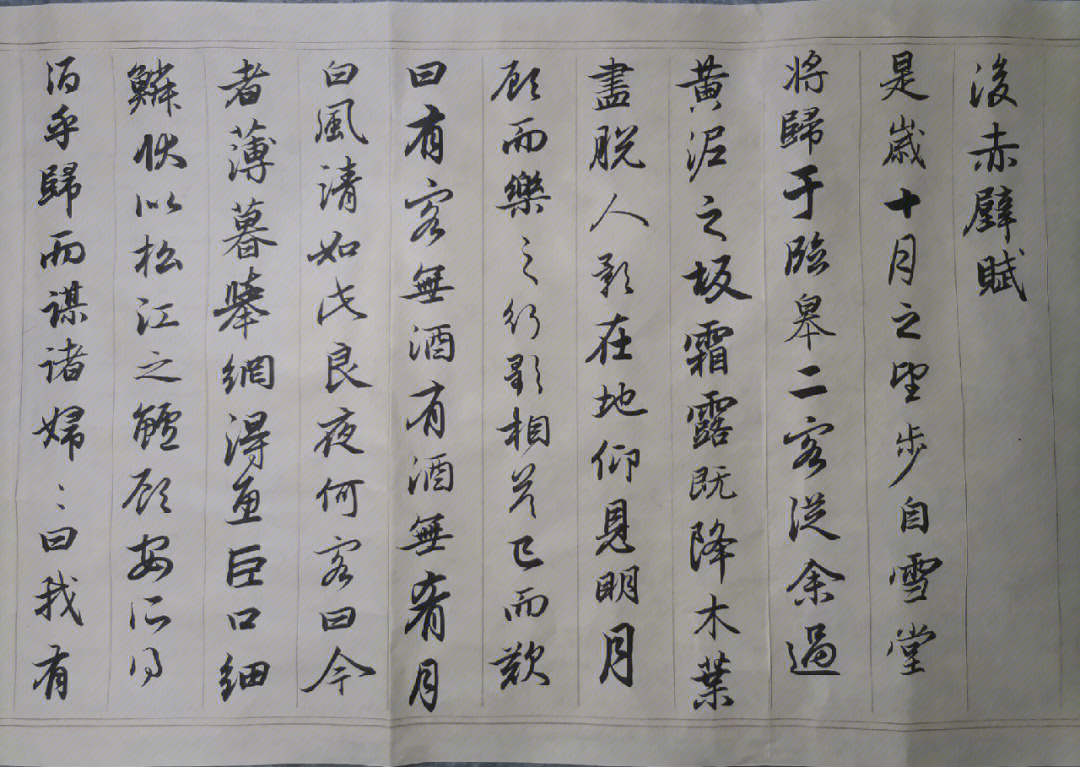 後赤壁賦
是歲十月之望步自雪堂
將歸于臨皋二客從余過
黃泥之坂霜露既降木葉
盡脫人影在地仰見明月
顧而樂之行影相答已而歎
曰有客無酒有酒無肴月
白風清如此良夜何客曰今
者薄暮舉網得魚巨口細
鱗狀似松江之鱸顧安所得
酒乎歸而謀諸婦〻曰我有